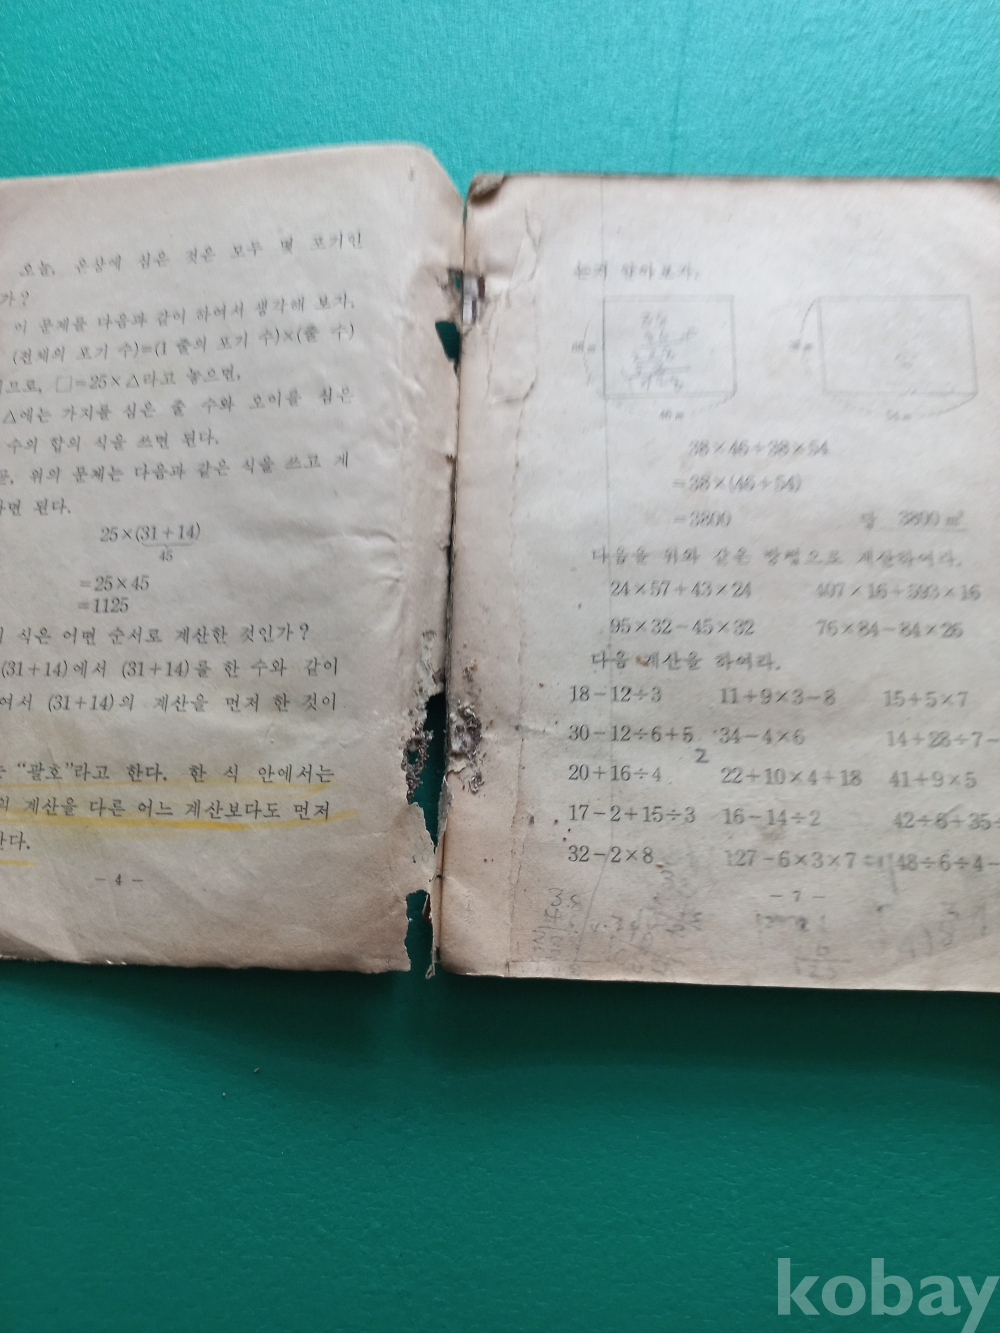 오늘, 온상에 심은 것은 모두 몇 포기인
가?
이 문제를 다음과 같이 하여서 생각해 보자.
(전체의 포기 수)=(1 줄의 포기 수)×(줄 수)
므로, □=25×△라고 놓으면,
△에는 가지를 심은 줄 수와 오이를 심은
수의 합의 식을 쓰면 된다.
위의 문제는 다음과 같은 식을 쓰고 계
면 된다.
25×(31+14)
45
=25×45
=1125
식은 어떤 순서로 계산한 것인가?
(31+14)에서 (31+14)를 한 수와 같이
여서 (31+14)의 계산을 먼저 한 것이
"괄호"라고 한다. 한 식 안에서는
의 계산을 다른 어느 계산보다도 먼저
한다.
- 4 -
는지 알아보자.
46 m
54 m
38×46+38×54
=38×(46+54)
=3800
답 3800 m²
다음을 위와 같은 방법으로 계산하여라.
24×57+43×24 407×16+593×16
95×32-45×32 76×84-84×26
다음 계산을 하여라.
18-12÷3 11+9×3-8 15+5×7
30-12÷6+5 34-4×6 14+28÷7-
2
20+16÷4 22+10×4+18 41+9×5
17-2+15÷3 16-14÷2 42÷6+35÷
32-2×8 127-6×3×7 48÷6÷4-
- 7 -
kobay